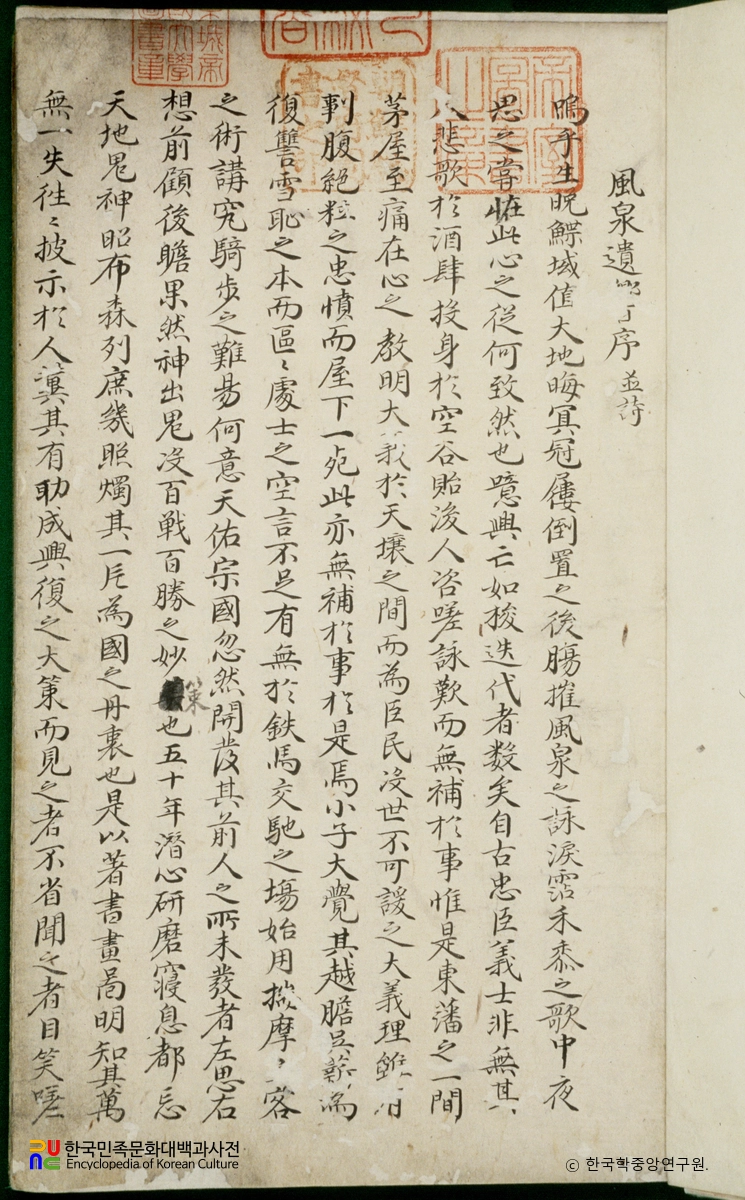 風泉遺 序 並詩
嗚乎生晩鰈域値大地晦冥冠屨倒置之後腸摧風泉之詠淚霑禾黍之歌中夜
思之當 此心之從何致然也噫興亡如梭迭代者數矣自古忠臣義士非無其
人悲歌於酒肆投身於空谷貽後人咨嗟詠歎而無補於事惟是東藩之一間
茅屋至痛在心之敎明大義於天壤之間而爲臣民沒世不可諼之大義理雖有
刳腹絶粒之忠憤而屋下一死此亦無補於事於是焉小子大覺其越膽吳薪爲
復讐雪恥之本而區〻處士之空言不足有無於鉄馬交馳之場始用揣摩〻容
之術講究騎步之難易何意天佑宗國忽然開發其前人之所未發者左思右
想前顧後瞻果然神出鬼沒百戰百勝之妙策也五十年潛心硏磨寢息都忘
天地鬼神昭布森列庶幾照燭其一片爲國之丹衷也是以著書畫啚明知其萬
無一失徃〻披示於人冀其有助成興復之大策而見之者不省聞之者目笑嗟
한국민족문화대백과사전
Encyclopedia of Korean Culture
© 한국학중앙연구원.